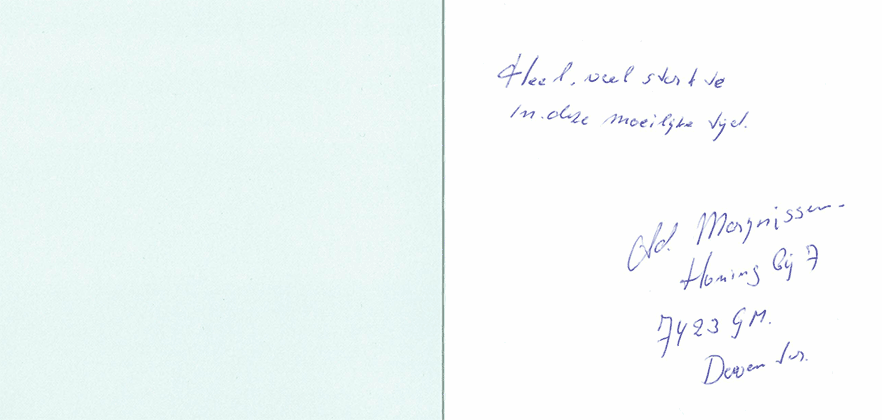 Heel, veel sterkte
In deze moeilijke tijd.
Ad.
Honing bij 7
7423 GM.
Deventer.